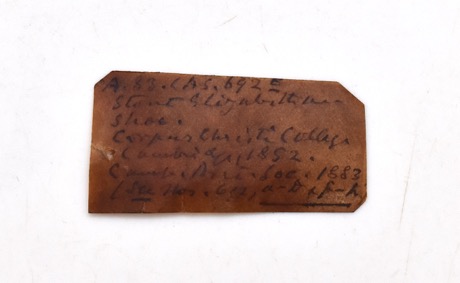 A.83. CAS. 692 E
Stout Elizabethan
Shoe.
Corpus Christi College
Cambridge, 1892.
Camb. Ant. Soc. 1883
(See Nos. 692, a-D + f-h)